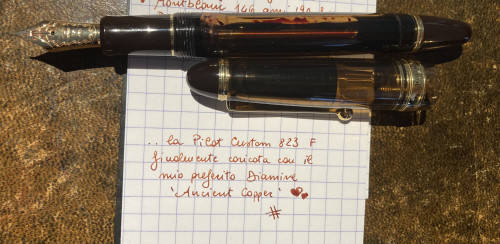 Montblanc 146
.. la Pilot Custom 823 F
finalmente caricata con il
mio preferito Diamine
'Ancient Copper'
#